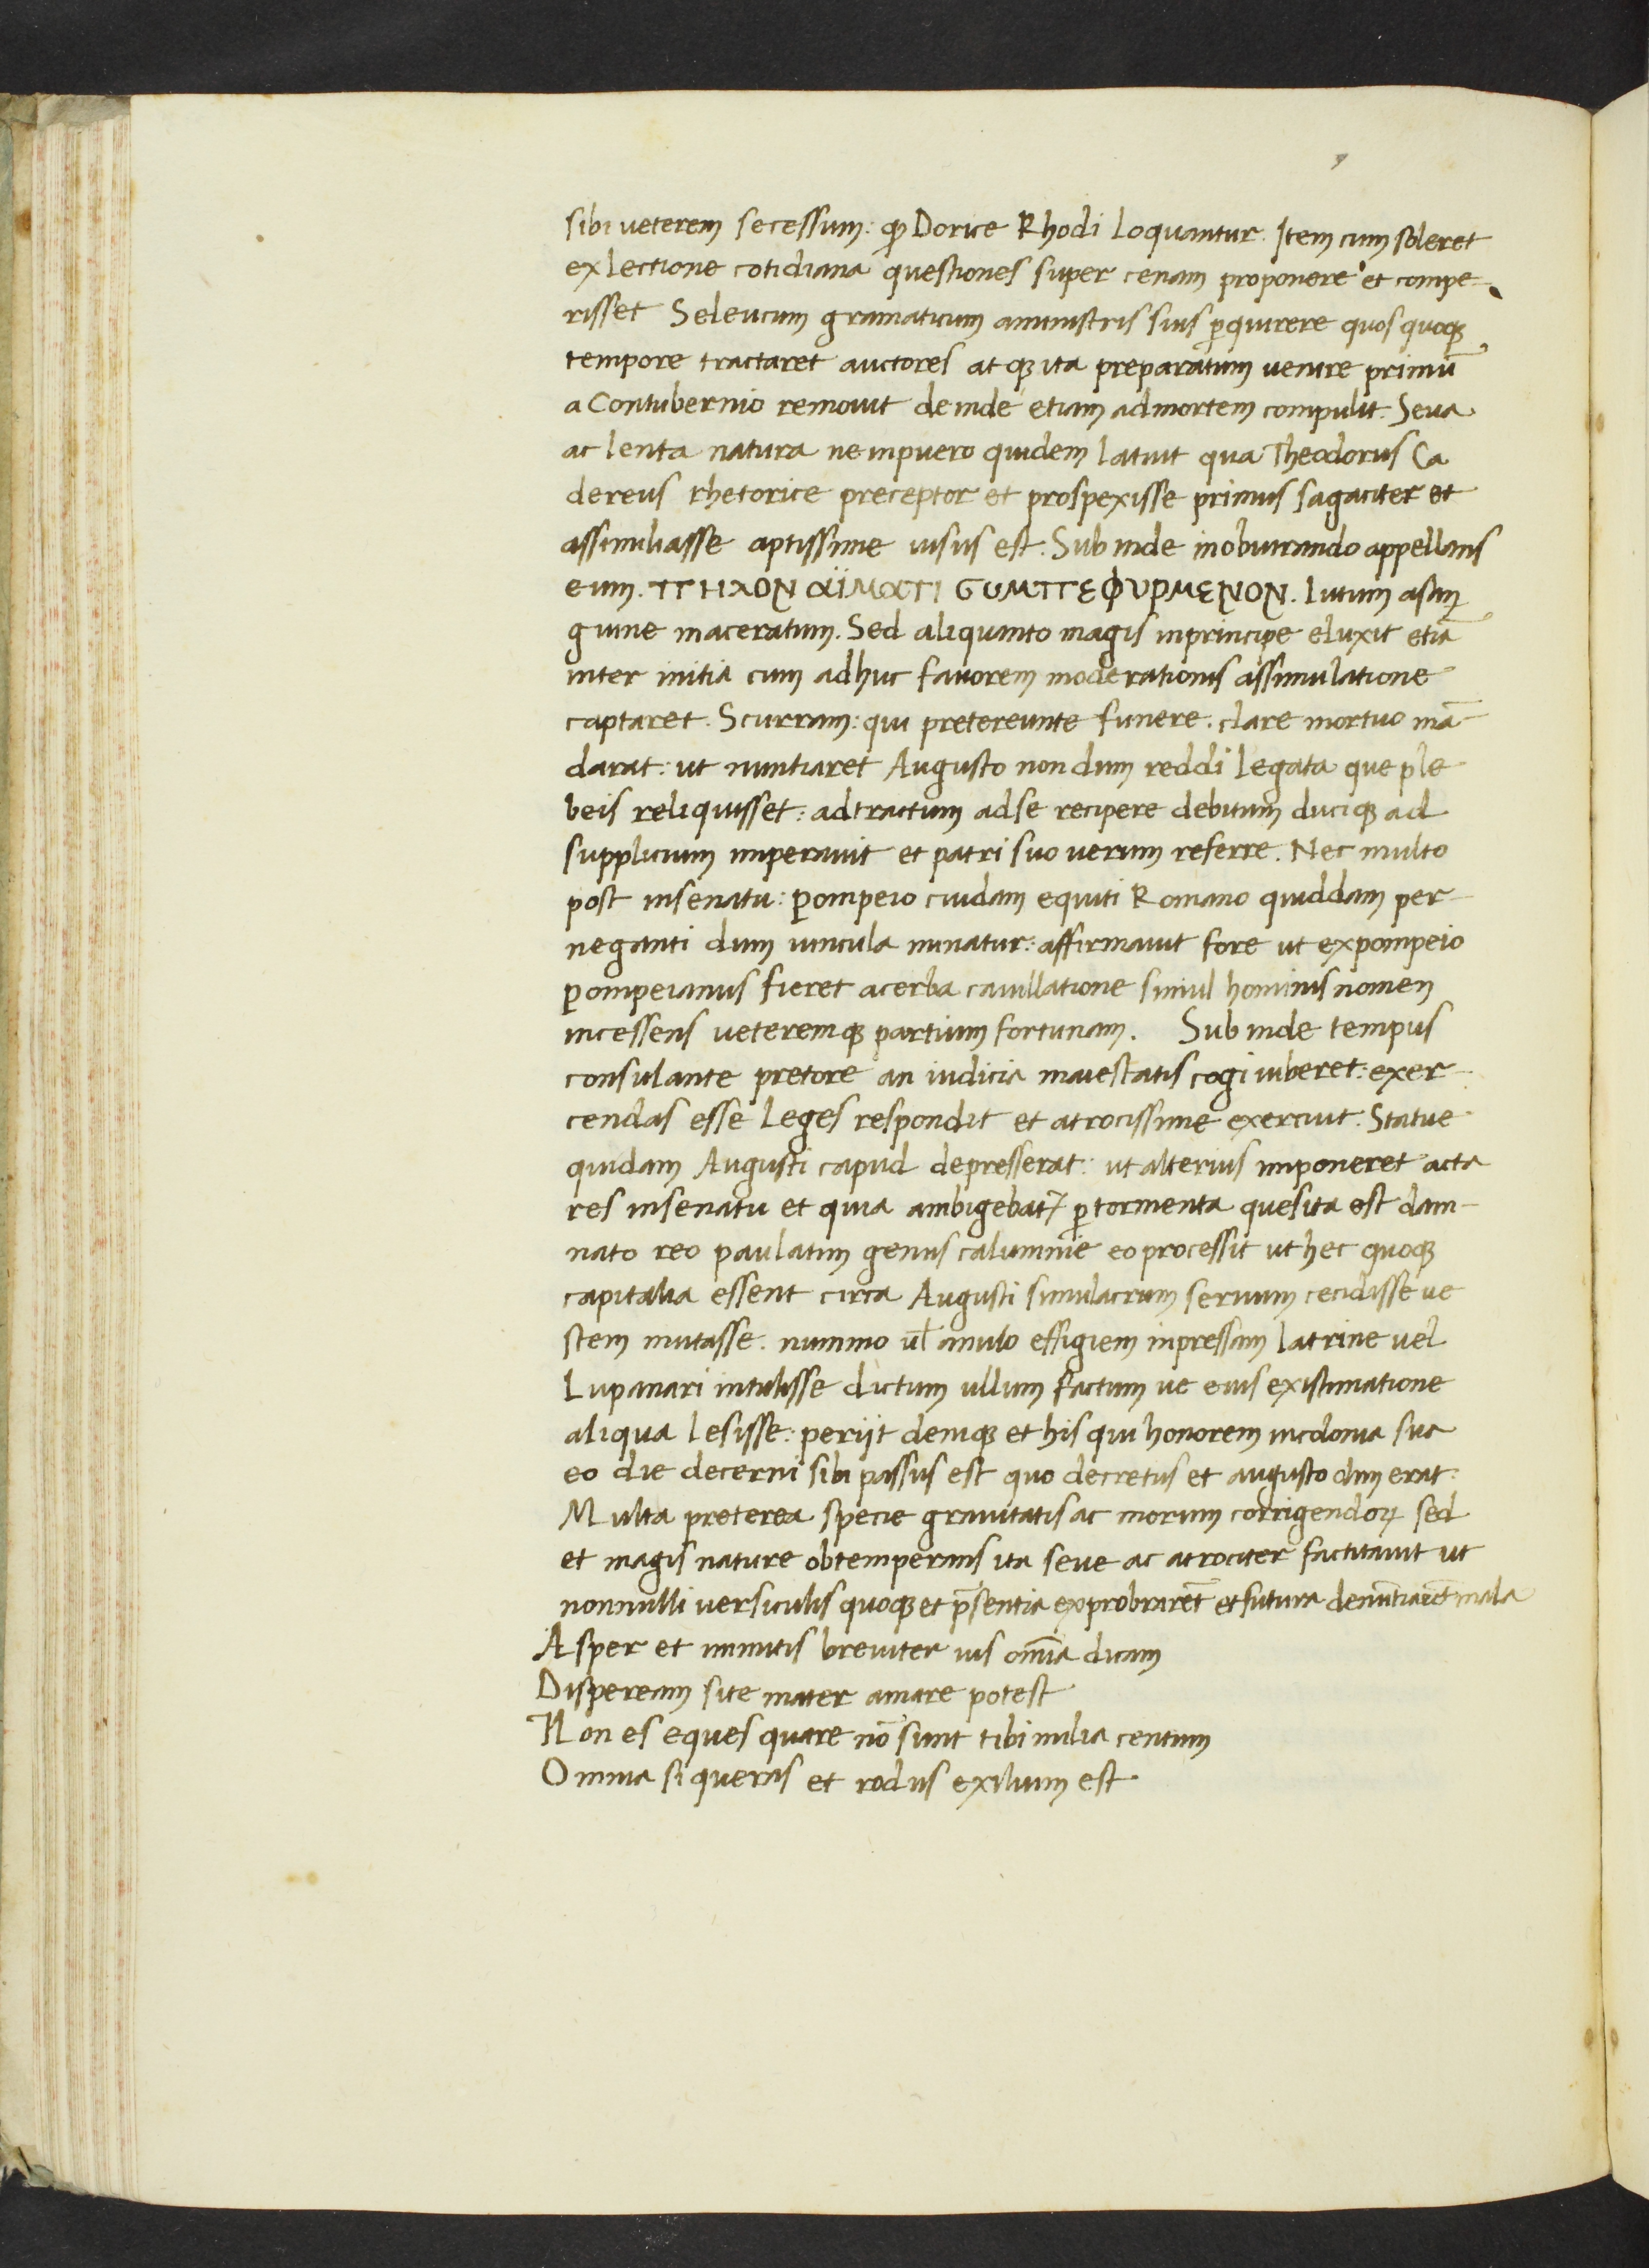 sibi ueterem secessum: ꝙ Dorice Rhodi Loquantur. Item cum soleret
ex lectione cotidiana questiones super cenam proponere et compe-
risset Seleucum gramaticum aministris suis ꝑquirere quos quoqꝫ
tempore tractaret auctores at qꝫ ita preparatum uenire primū
a Contubernio remouit deinde etiam admortem compulit. Seua
ac lenta natura ne inpuero quidem latuit qua Theodorus Ca
dereus rhetorice preceptor et prospexisse primus sagaciter et
assimiliasse aptissime uisus est. Sub inde inobiurando appellans
eum. ΠΗΛΟΝ ΑΪΜΑΤΙ CΥΜΠΕΦΥΡΜΕΝΟΝ. lutum asan
guine maceratum. Sed aliquanto magis inprincipe eluxit etiā
inter initia cum adhuc fauorem moderationis assimulatione
captaret. Scurram: qui pretereunte funere. clare mortuo mā-
darat: ut nuntiaret Augusto non dum reddi legata que ple
beis reliquisset: adtractum adse recipere debitum duciqꝫ ad
supplicium imperauit et patri suo uerum referre. Nec multo
post insenatu: Pompeio cuidam equiti Romano quiddam per-
neganti dum uincula minatur: affirmauit fore ut expompeio
Pompeianus fieret acerba cauillatione simul hominis nomen
incessens ueteremqꝫ partium fortunam. Sub inde tempus
consulante pretore an iudicia maiestatis cogi iuberet: exer-
cendas esse leges respondit et atrocissime exercuit. Statue
quidam Augusti capud depresserat: ut alterius imponeret acta
res insenatu et quia ambigebatꝛ ꝑ tormenta quesita est dam-
nato reo paulatim genus calumnie eo processit ut hec quoqꝫ
capitalia essent circa Augusti simulacrum seruum cecidisse ue
stem mutasse. nummo ul̄ anulo effigiem inpressam latrine uel
Lupanari intulisse dictum ullum factum ue eius existimatione
aliqua lesisse: periit deniqꝫ et his qui honorem incolonia sua
eo die decerni sibi passus est quo decretus et augusto dim erat:
Multa preterea specie grauitatis ac morum corrigendoꝝ sed
et magis nature obtemperans ita seue ac atrociter factitauit ut
nonnulli uersiculis quoqꝫ et p̄sentia exprobrarēt et futura denūtiarēt mala
Asper et inmitis breuiter uis omīa dicam
Dispeream si te mater amare potest
Non es eques quare nō sunt tibi milia centum
Omnia si queras et rodus exilium est